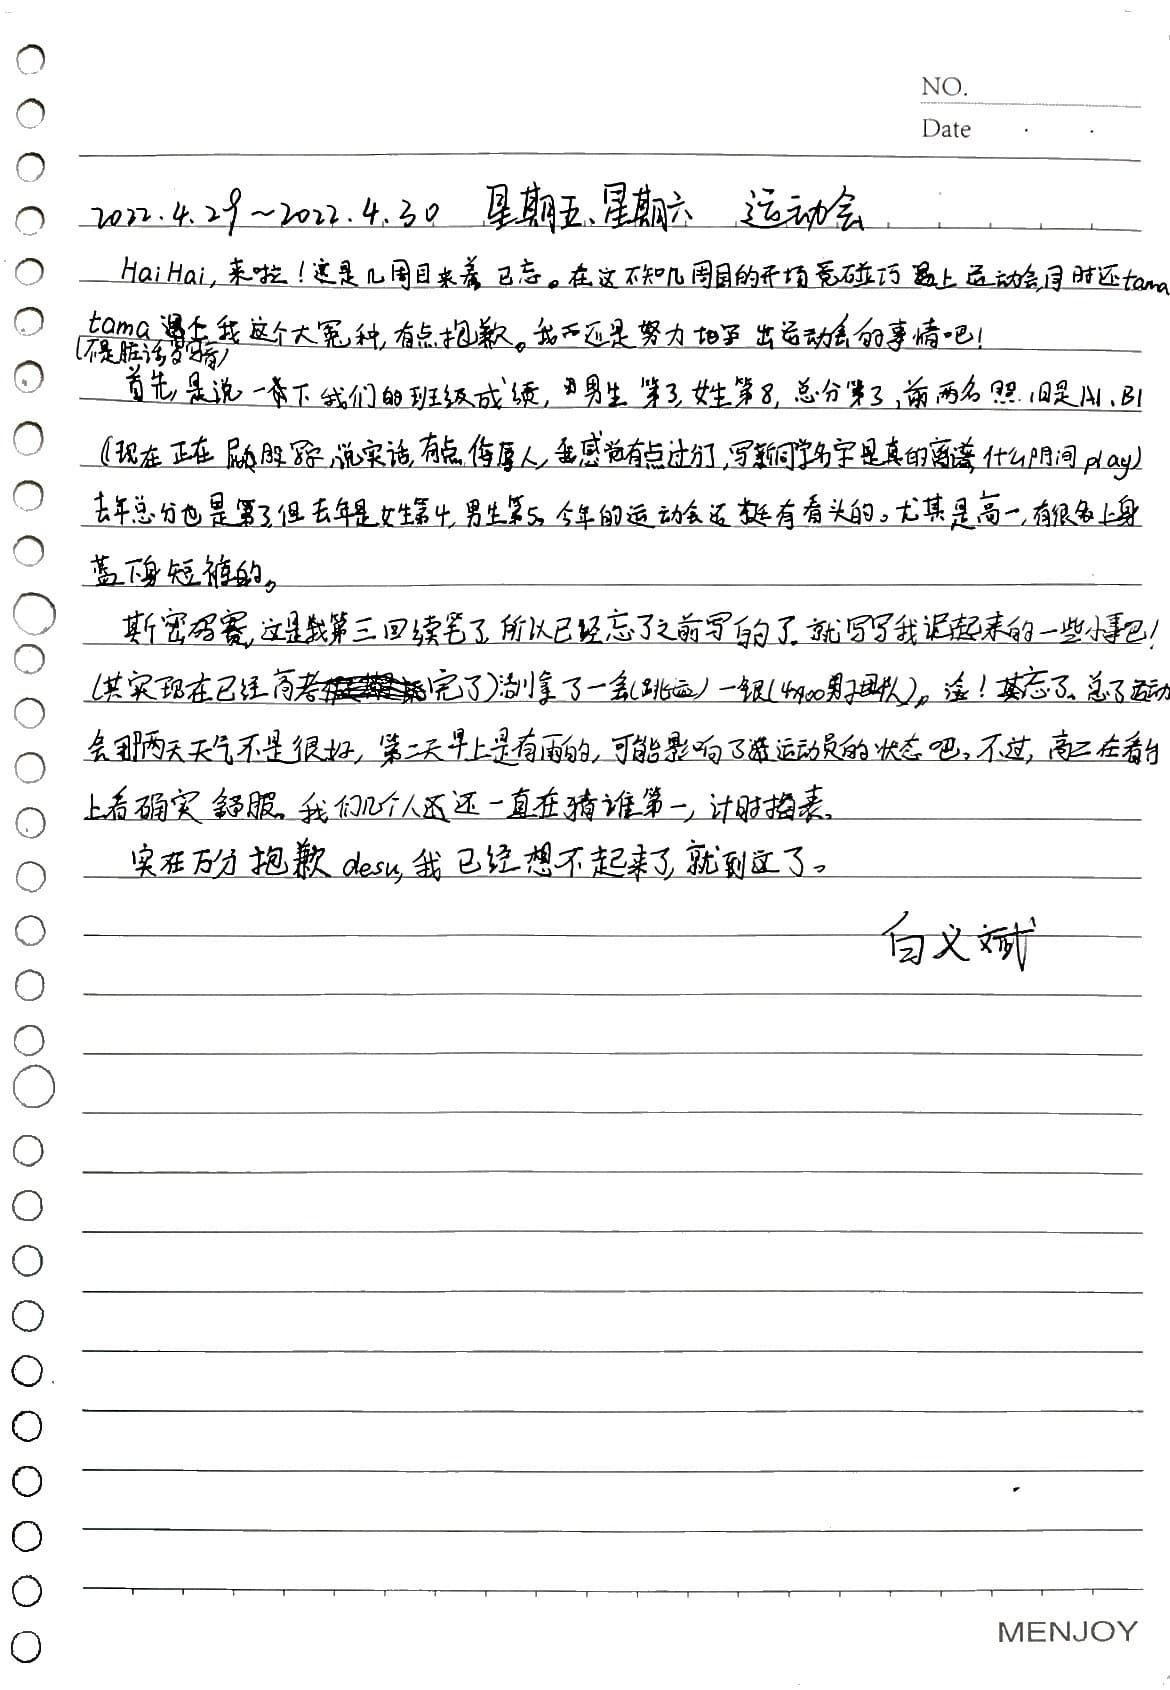 NO.
Date
2022.4.29~2022.4.30 星期五、星期六 运动会
HaiHai,来啦!这是几周目来着 已忘。在这不知几周目的开场竟碰巧遇上运动会,同时还tama
tama遇上我这个大冤种,有点抱歉。我还是努力地写出运动会的事情吧!
(不是脏话)
首先,是说一下我们的班级成绩,男生第3,女生第8,总分第3,前两名照旧是A1、B1
(现在正在 写,说实话,有点侮辱人,感觉有点过分了,写新同学名字是真的离谱,什么阴间play)
去年总分也是第3,但去年是女生第4,男生第5。今年的运动会还挺有看头的。尤其是高一,有很多上身
蓝下身短裤的。
斯密码赛,这是我第三回续笔了,所以已经忘了之前写的了。就写写我记起来的一些小事吧!
(其实现在已经高考完了)拿了一金(跳远)一银(4×400男子团队)。淦!真忘了。总之运动
会那两天天气不是很好,第二天早上是有雨的,可能影响了运动员的状态吧。不过,高二在看台
上看确实舒服。我们几个人还一直在猜谁第一,计时掐表。
实在万分抱歉desu,我已经想不起来了,就到这了。
白义斌
MENJOY